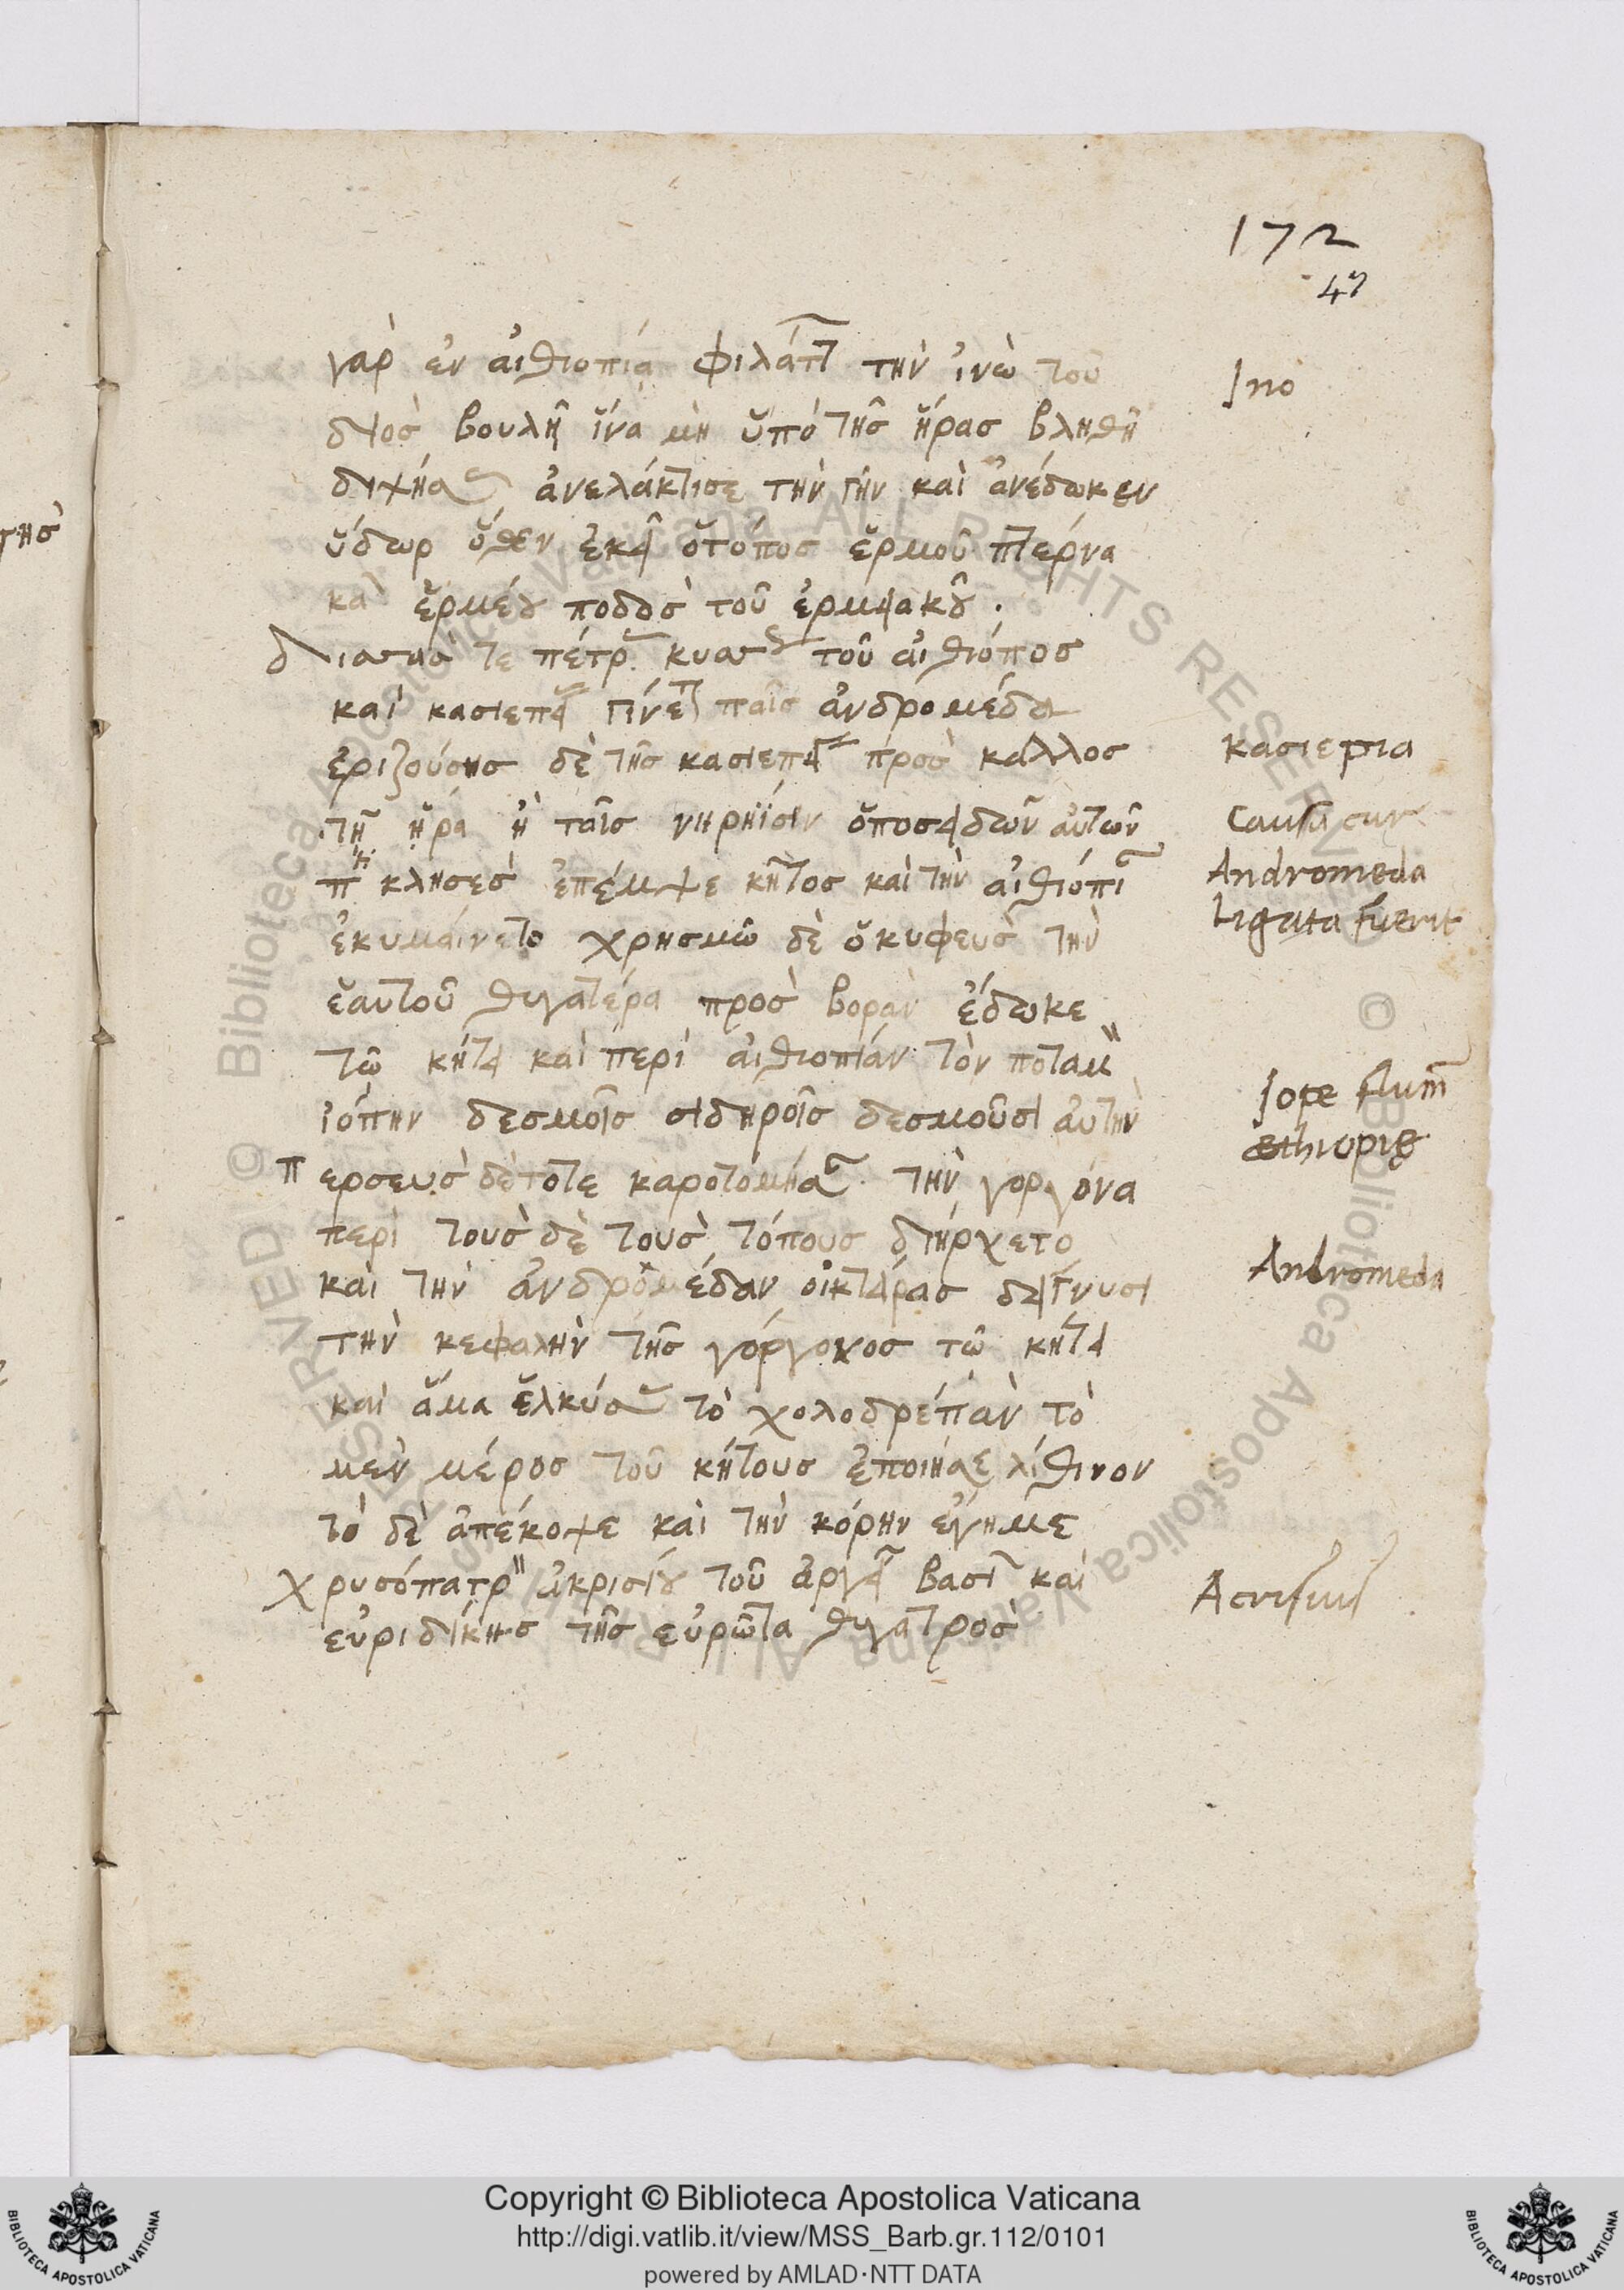 172
47
γὰρ ἐν αἰθιοπίᾳ φιλάττ τὴν ἰνὼ τοῦ
Ino
διὸς βουλῆ ἵνα μὴ ὑπὸ τῆς ἥρας βληθῆ
ἀνελάκτισε τὴν γὴν καὶ ἀνέδωκεν
τῆς
ὕδωρ ὅθεν ἐκεῖ ὁ τόπος ἑρμοῦ πτέρνα
καὶ ποδδσ τοῦ
τε κυασ τοῦ αἰθιόπος
καὶ κασιεπεί γίνετ παῖς ἀνδρομέδα
ἐριζούσης δὲ τῆς κασιεπεί πρὸς κάλλος
κασιεπια
τῆ ἥρα ἢ ταῖς νηρηΐσιν ὁποσειδῶν αὐτῶν
Causa cur
κλησεσ ἐπέμψε κῆτος καὶ τὴν αἰθιόπι
Andromeda
ligata fuerit
ἐκυμαίνετο χρησμῶ δὲ ὁ κυφευσ τὴν
ἑαυτοῦ θυγατέρα πρὸς βορὰν ἔδωκε
τῶ κήτει καὶ περὶ αἰθιοπίαν τὸν ποταμ
Iope flum
ἰόπην δεσμοῖς σιδηροῖς δεσμοῦσι αὐτὴν
ethiopie
περσευσ δὲ τότε καροτομήσα τὴν γοργόνα
περὶ τοὺς δὲ τοὺς τόπους διήρχετο
καὶ τὴν ἀνδρομέδαν οἰκτείρας δείγνυσι
Andromeda
τὴν κεφαλὴν τῆς γόργονος τῶ κήτει
καὶ ἅμα ἑλκύσα τὸ χολοδρέπαν τὸ
μὲν μέρος τοῦ κήτους ἐποίησε λίθινον
τὸ δὲ ἀπέκοψε καὶ τὴν κόρην ἔγημε
χρυσόπατρ ἀκρισίου τοῦ ἀργεί βασι καὶ
Acrisius
εὐριδίκης τῆς εὐρῶτα θυγατρὸς
Copyright © Biblioteca Apostolica Vaticana
http://digi.vatlib.it/view/MSS_Barb.gr.112/0101
powered by AMLAD·NTT DATA
BIBLIOTECA APOSTOLICA VATICANA
BIBLIOTECA APOSTOLICA VATICANA